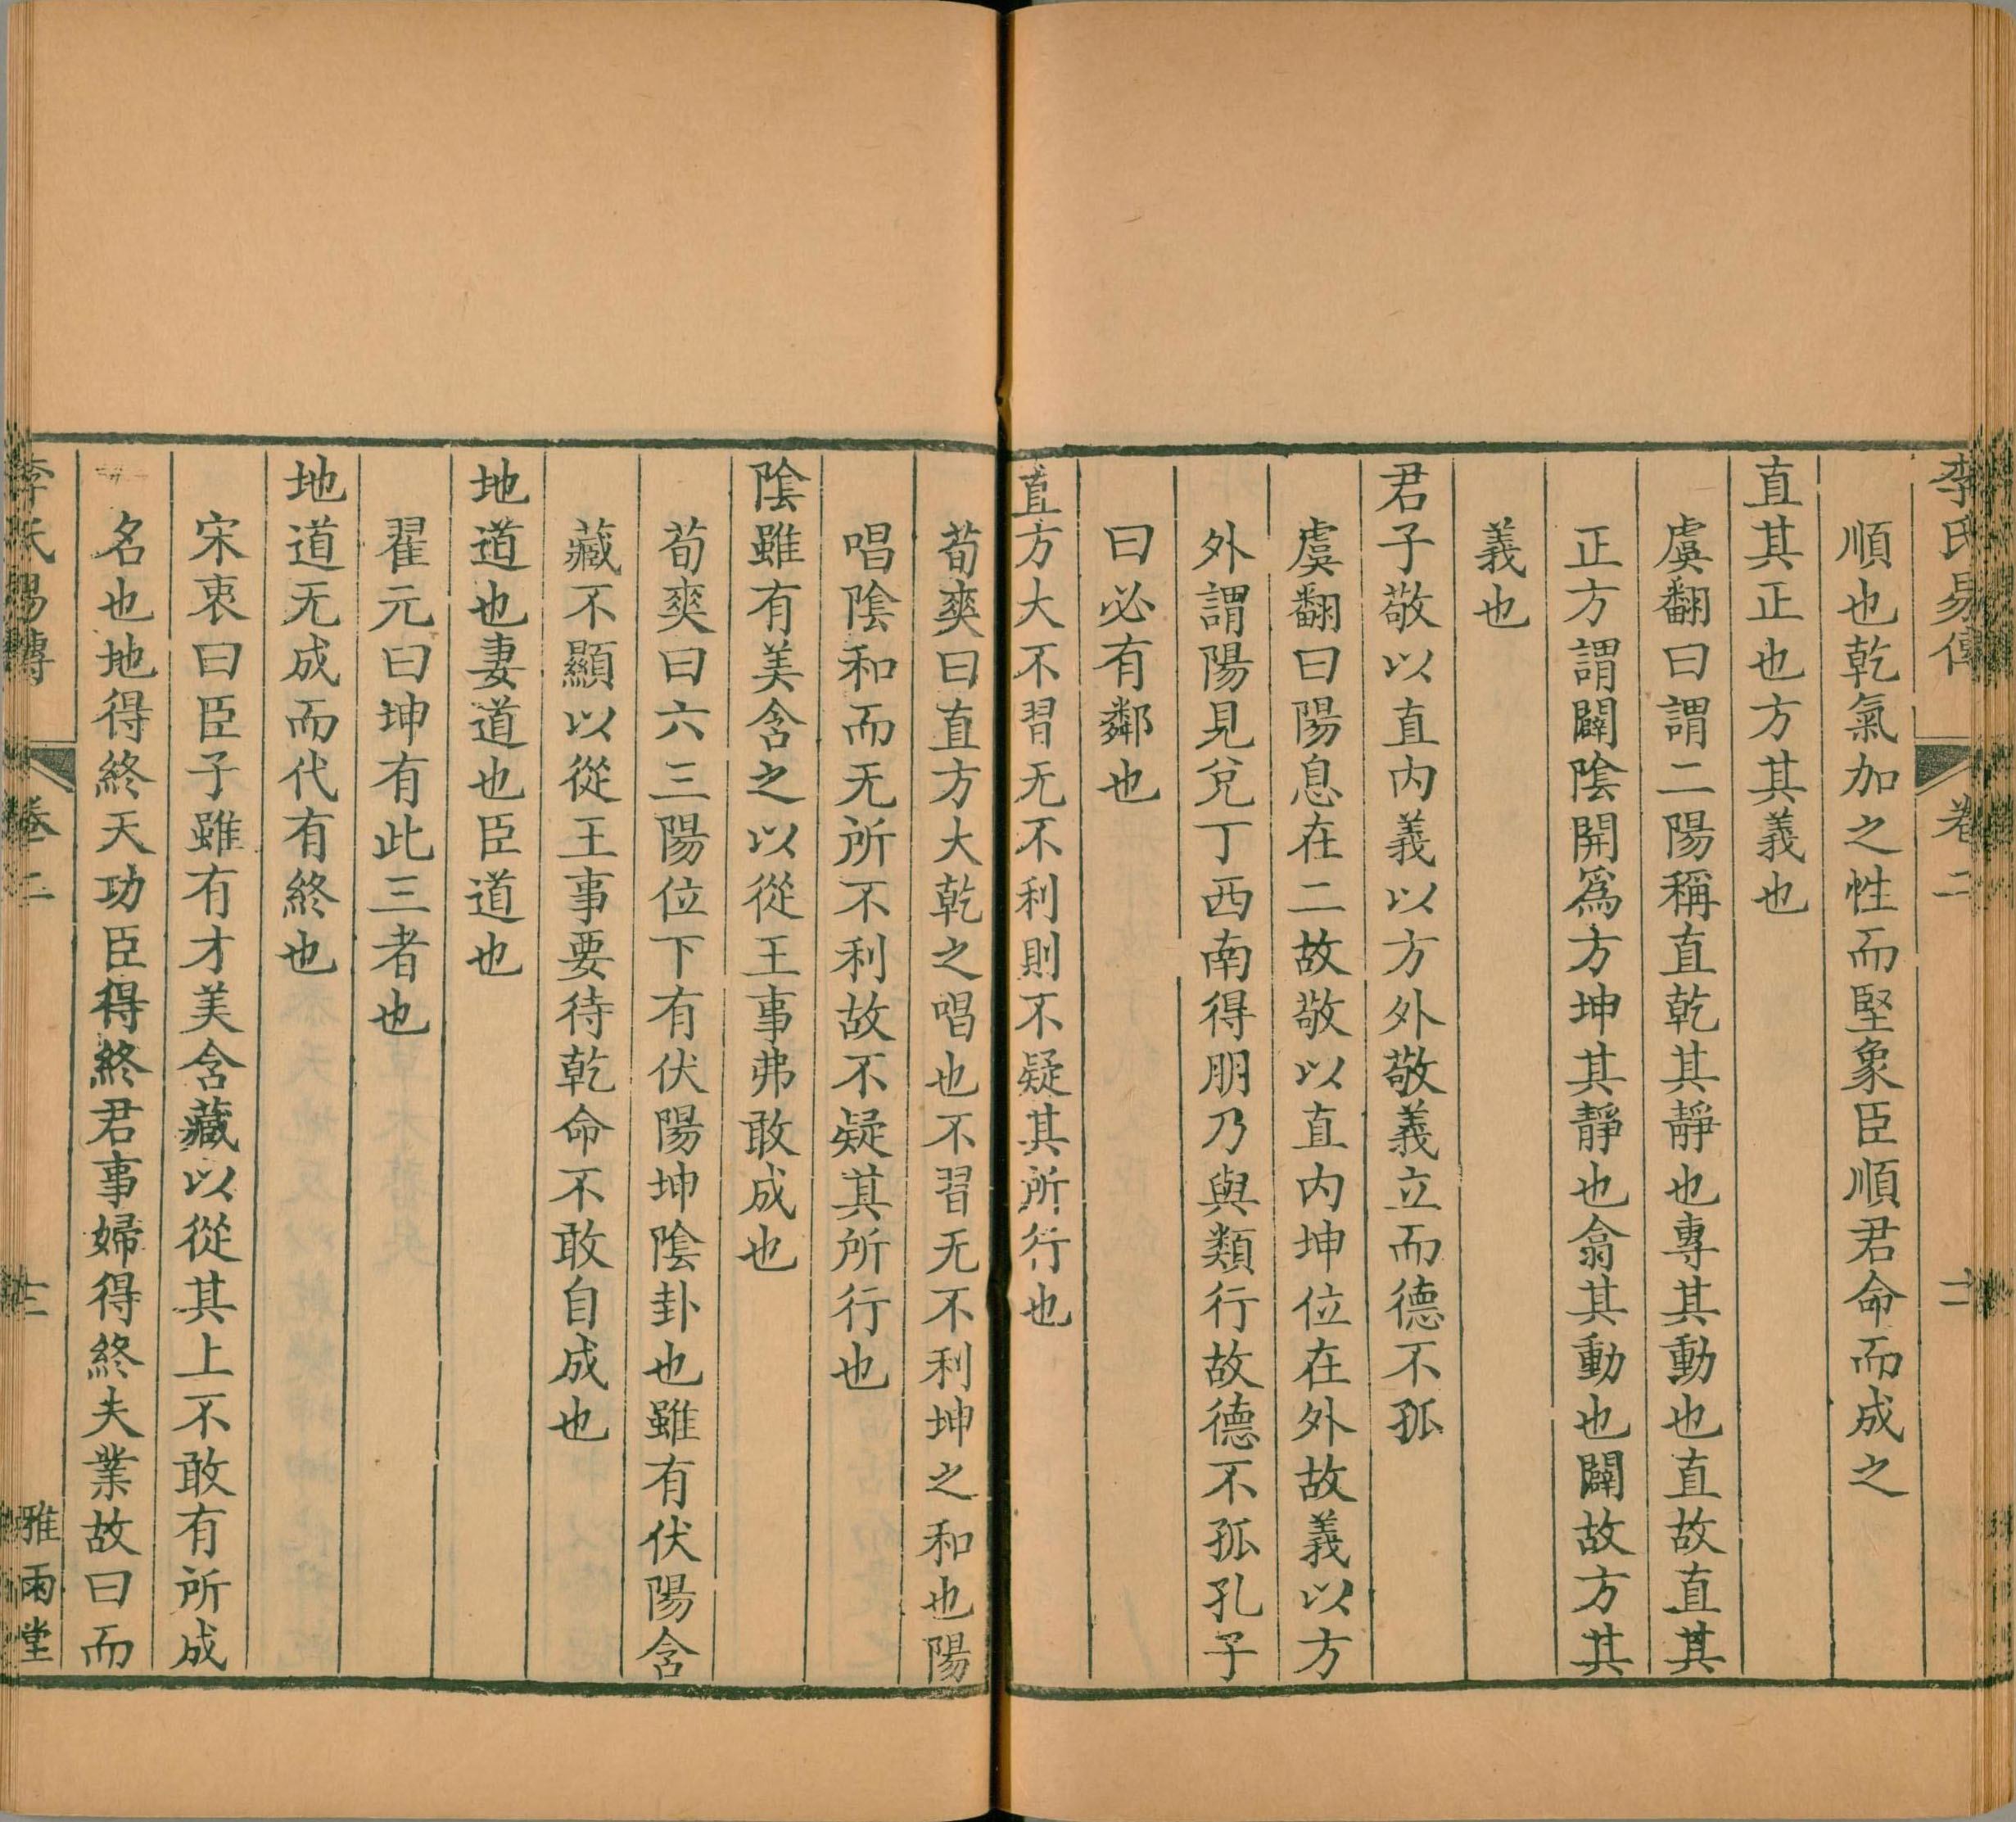 李氏易傳 卷二 十一
順也乾氣加之性而堅象臣順君命而成之
直其正也方其義也
虞翻曰謂二陽稱直乾其靜也專其動也直故直其
正方謂闢陰開爲方坤其靜也翕其動也闢故方其
義也
君子敬以直内義以方外敬義立而德不孤
虞翻曰陽息在二故敬以直内坤位在外故義以方
外謂陽見兌丁西南得朋乃與類行故德不孤孔子
曰必有鄰也
直方大不習无不利則不疑其所行也
荀爽曰直方大乾之唱也不習无不利坤之和也陽
唱陰和而无所不利故不疑其所行也
陰雖有美含之以從王事弗敢成也
荀爽曰六三陽位下有伏陽坤陰卦也雖有伏陽含
藏不顯以從王事要待乾命不敢自成也
地道也妻道也臣道也
翟元曰坤有此三者也
地道无成而代有終也
宋衷曰臣子雖有才美含藏以從其上不敢有所成
名也地得終天功臣得終君事婦得終夫業故曰而
李氏易傳 卷二 雅雨堂